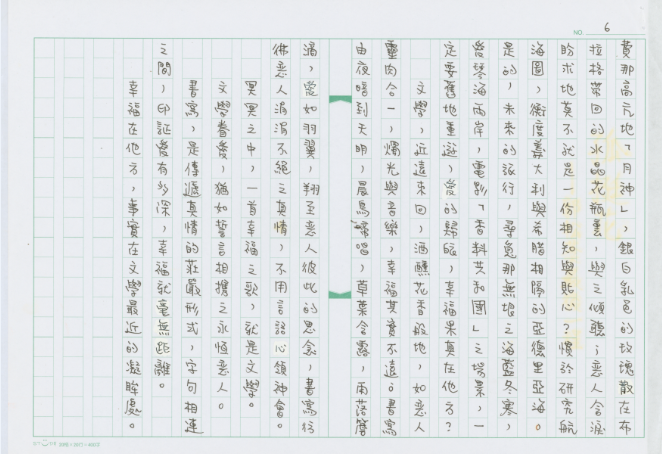 NO. 6
費那高克地「月神」，銀白乳色的玫瑰散在布
拉格帶回的水晶花瓶裏，與之傾聽；戀人含淚
盼求地莫不就是一份相知與貼心？慣於研究航
海圖，衡度義大利與希臘相隔的亞德里亞海。
是的，未來的旅行，尋覓那無垠之海藍冬寒，
愛琴海兩岸，電影「香料共和國」之場景，一
定要舊地重遊，愛的歸眠，幸福果真在他方？
文學，近遠來回，酒釀花香般地，如戀人
靈肉合一，燭光與音樂，幸福其實不遠。書寫
由夜暗到天明，晨鳥啼唱，草葉含露，雨落簷
滴，愛如羽翼，翔至戀人彼此的思念，書寫彷
彿戀人涓涓不絕之真情，不用言語心領神會。
冥冥之中，一首幸福之歌，就是文學。
文學眷愛，猶如誓言相攜之永恆戀人。
書寫，是傳遞真情的莊嚴形式，字句相連
之間，印証愛有多深，幸福就毫無距離。
幸福在他方，事實在文學最近的凝眸處。